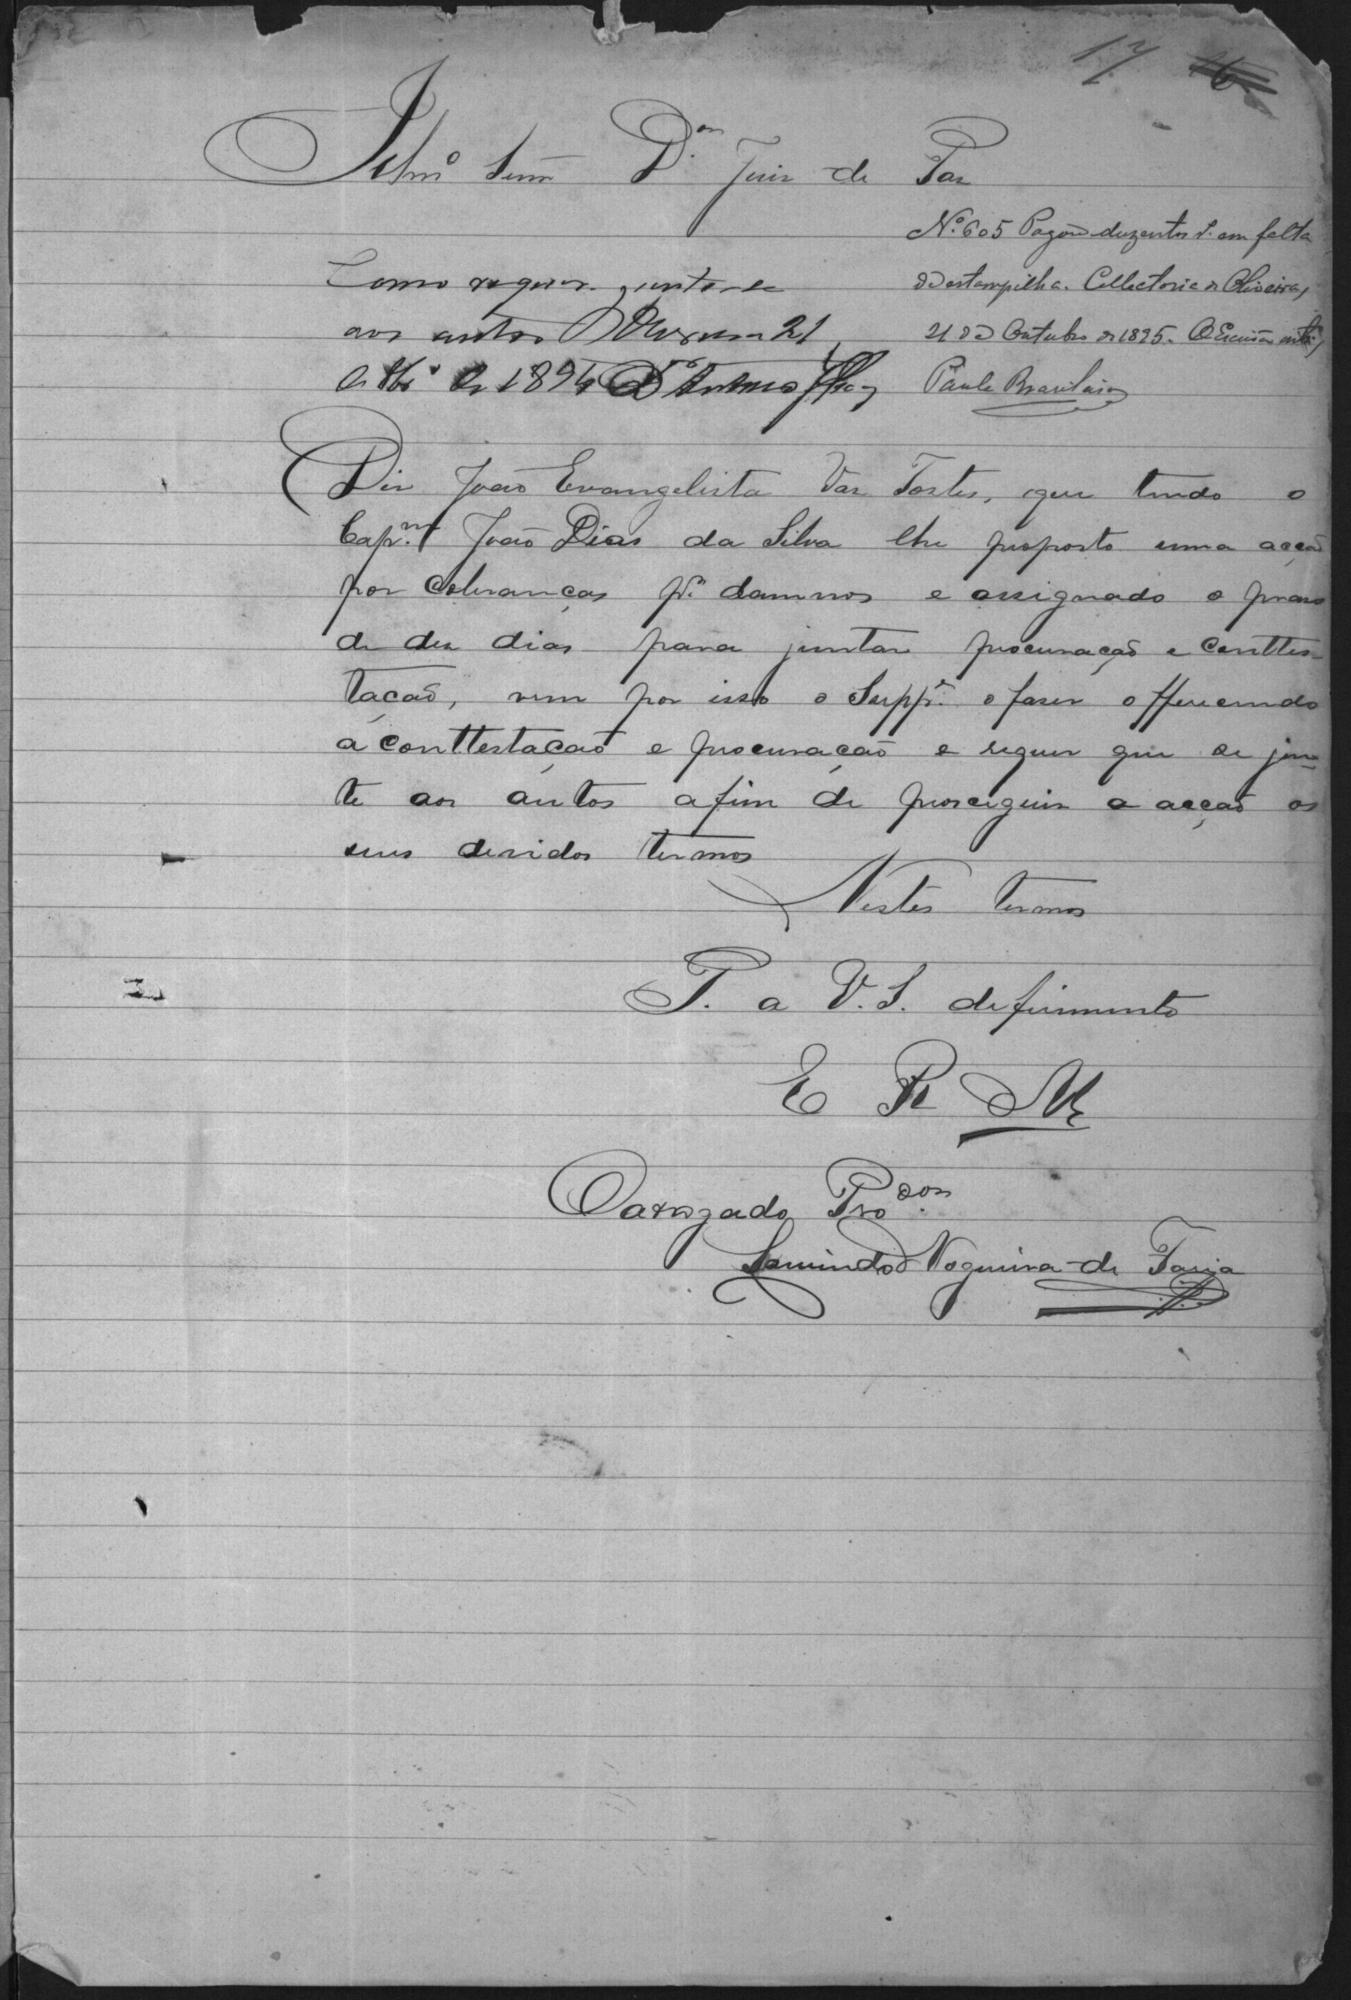 17 16
Illmº Senr. D.or Juiz de Paz
Nº 605 Pagou duzentos r. em falta
de estampilha. Collectoria de Oliveira,
21 de Outubro de 1895. O Escrivão
Paula Brasileiro
Como requer. junte-se
aos autos Oliveira 21
de de 1895
Diz João Evangelista Vaz Tostes, que tendo o
Cap.m João Dias da Silva lhe proposto uma acção
por cobranças pr. damnos e assignado o praso
de dez dias para juntar procuração e conttes-
tação, vem por isso o Supp.e o fazer offerecendo
a conttestação e procuração e requer que se jun-
te aos autos afim de proseguir a acção os
seus devidos termos
Nestes termos
P. a V. S. deferimento
E R M
O arogado Pro.dor
Nogueira de Faria